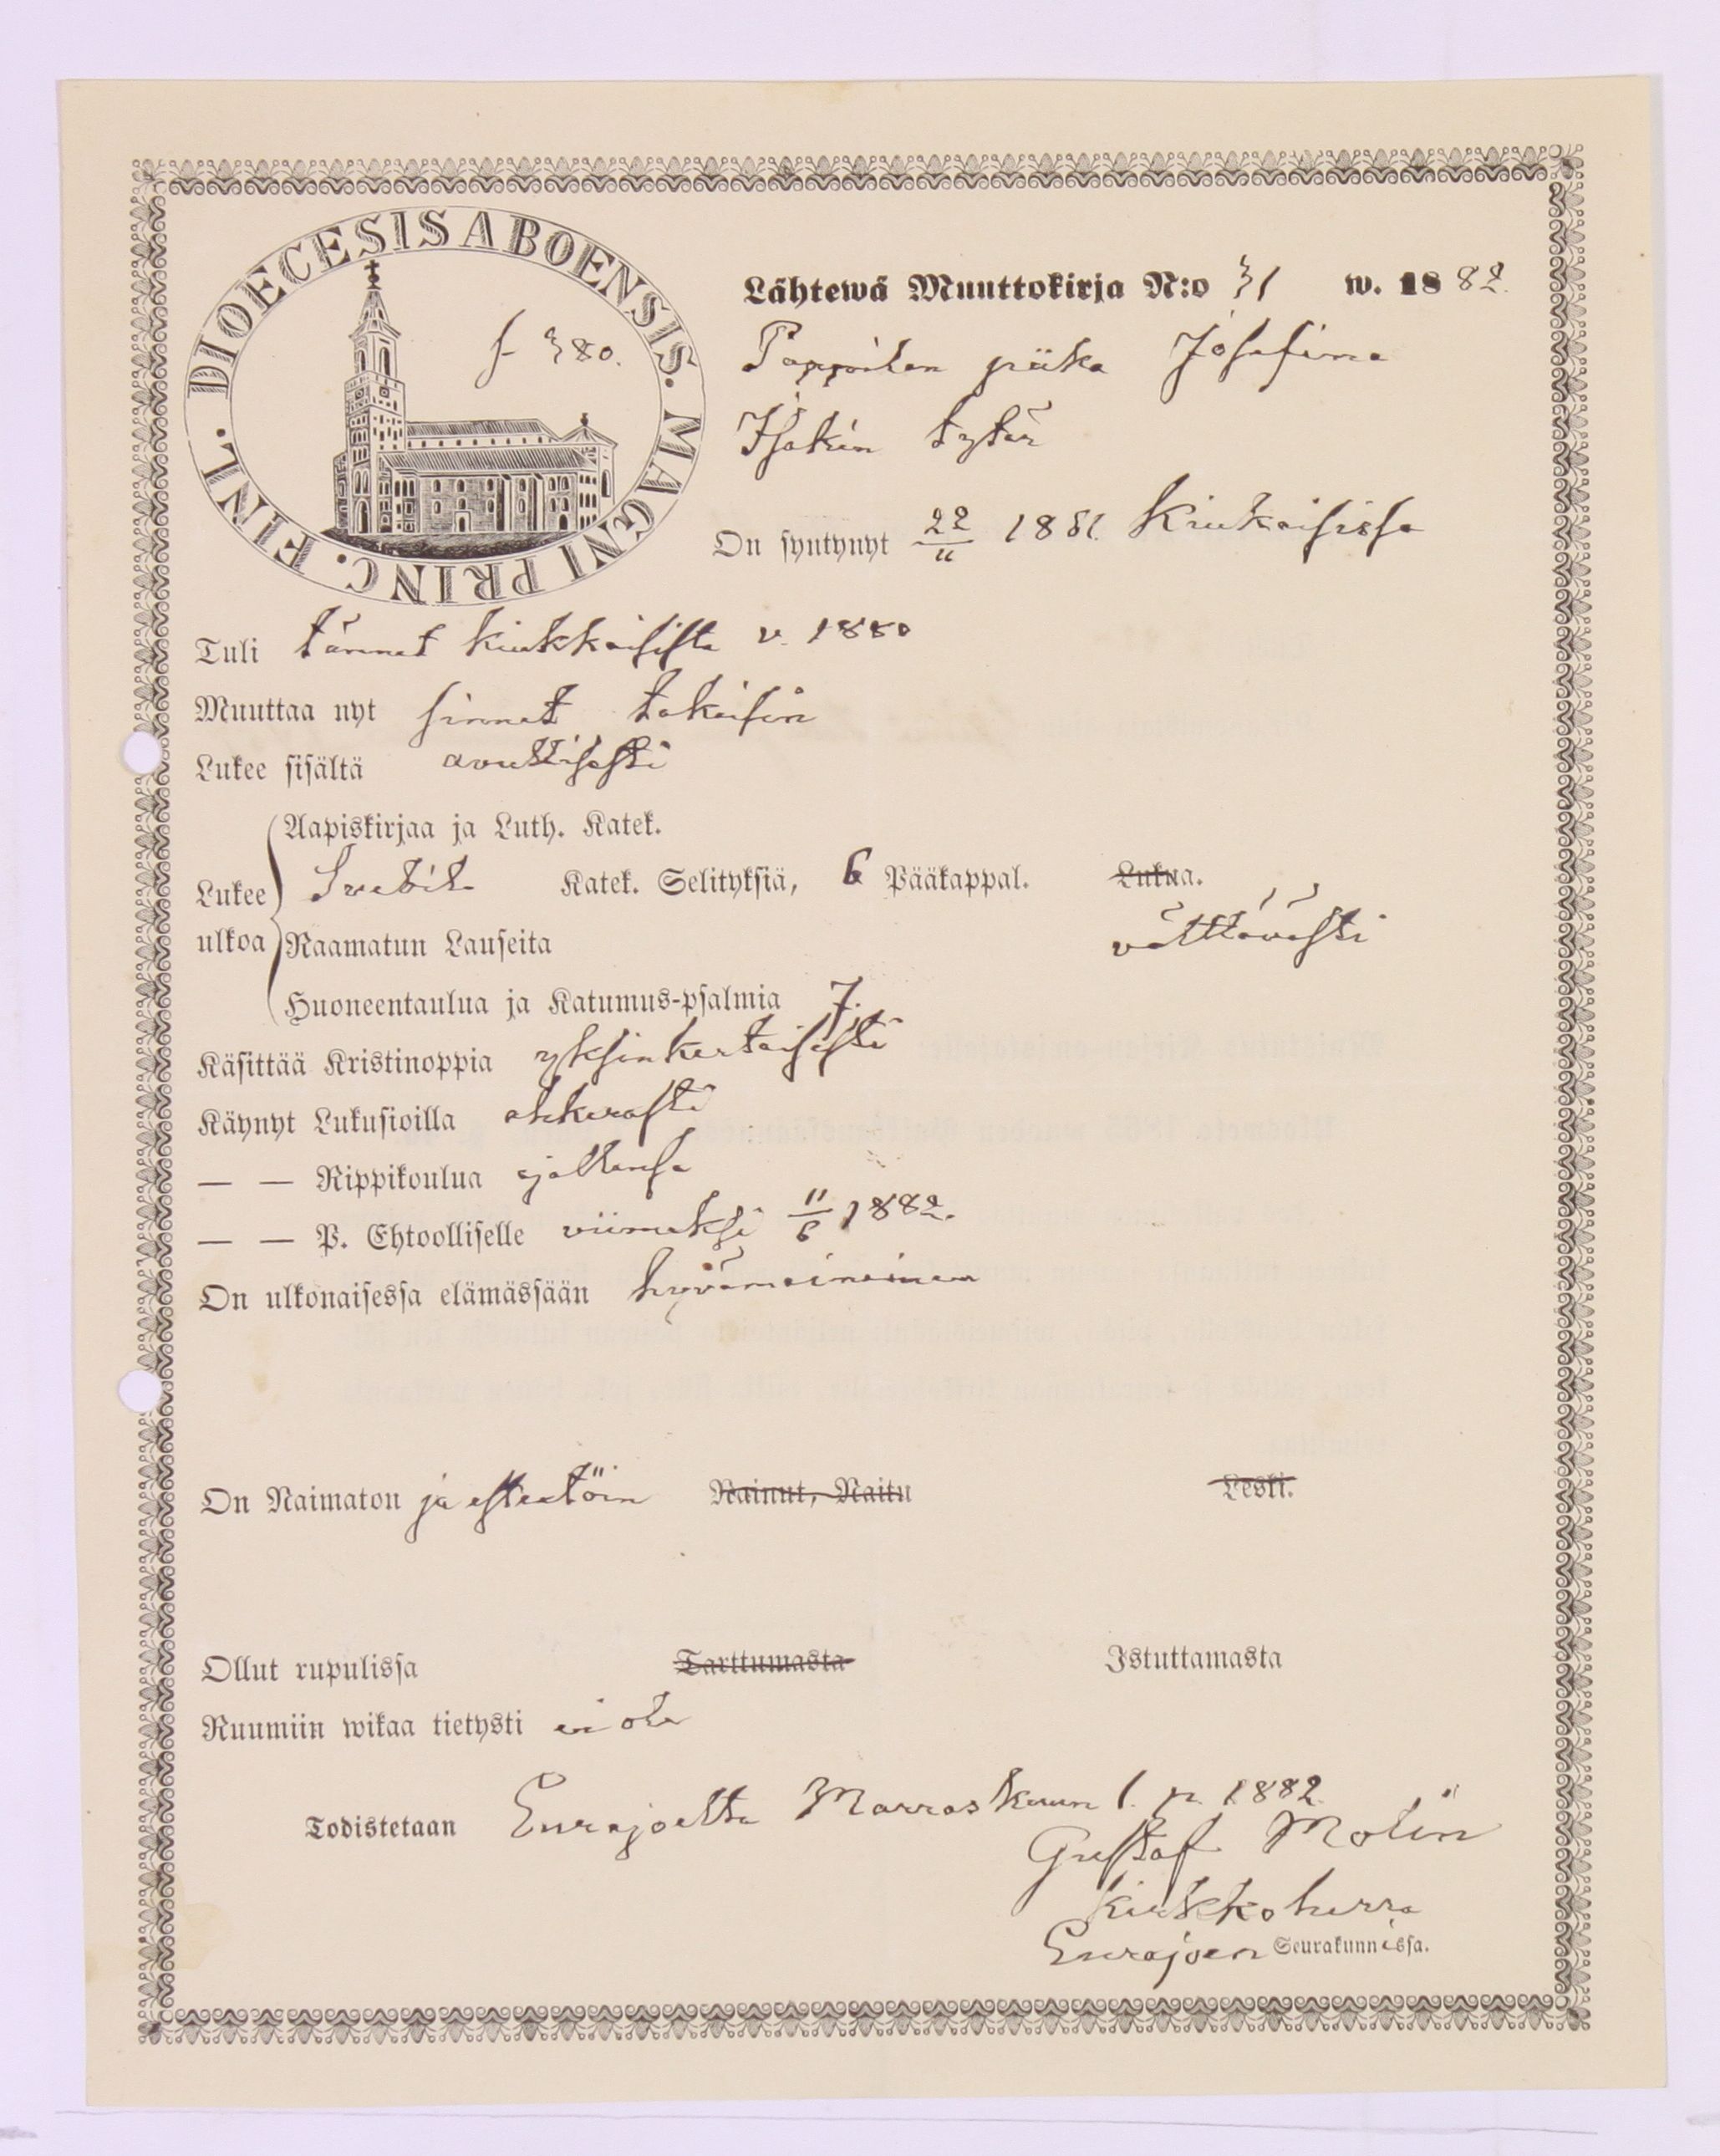 DIOECESIS ABOENSIS. MAGNI PRINC. FINL.
f. 380.
Lähtewä Muuttokirja N:o 31 w. 1882.
Pappilan piika Josefina
Isakin tytär
On syntynyt 22/11 1851 Kiukaisissa
Tuli tännet kiukkaisista v. 1880
Muuttaa nyt sinnet takaisin
Lukee sisältä avuttisesti
Aapiskirjaa ja Luth. Katek.
Lukee ulkoa Svebil. Katek. Selityksiä, 6 Pääkappal. Lukua.
Raamatun Lauseita välttävästi
Huoneentaulua ja Katumus-psalmia 7.
Käsittää Kristinoppia yksinkertaisesti
Käynyt Lukusioilla ahkerasti
— — Rippikoulua ajallansa
— — P. Ehtoolliselle viimeksi 11/6 1882.
On ulkonaisessa elämässään hyvämaineinen
On Naimaton ja esteetöin Nainut, Naitu Leski.
Ollut rupulissa Tarttumasta Istuttamasta
Ruumiin wikaa tietysti ei ole
Todistetaan Eurajoelta Marraskuun 1. p. 1882.
Gustaf Molin
kirkkoherra
Eurajoen Seurakunnissa.